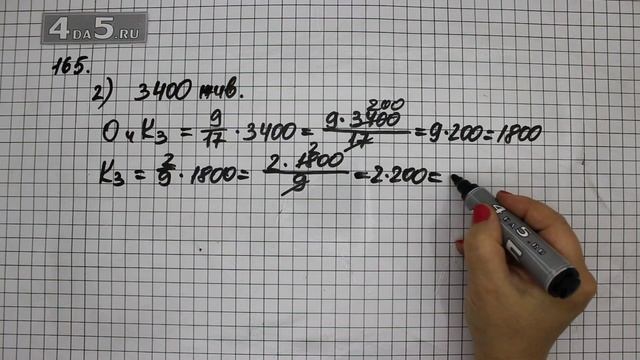 4DA5.RU
165.
2) 3400 жив.
О и Кз = 9/17 · 3400 = 9·3400/17 200 = 9·200 = 1800
Кз = 2/9 · 1800 = 2·1800/9 2 = 2·200 =
4DA5.RU